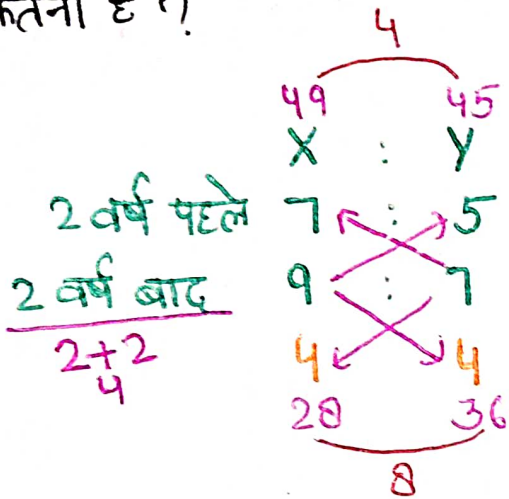 कितनी है ?
4
49 45
X : Y
2 वर्ष पहले 7 : 5
2 वर्ष बाद 9 : 7
2+2 4 4
4
28 36
8